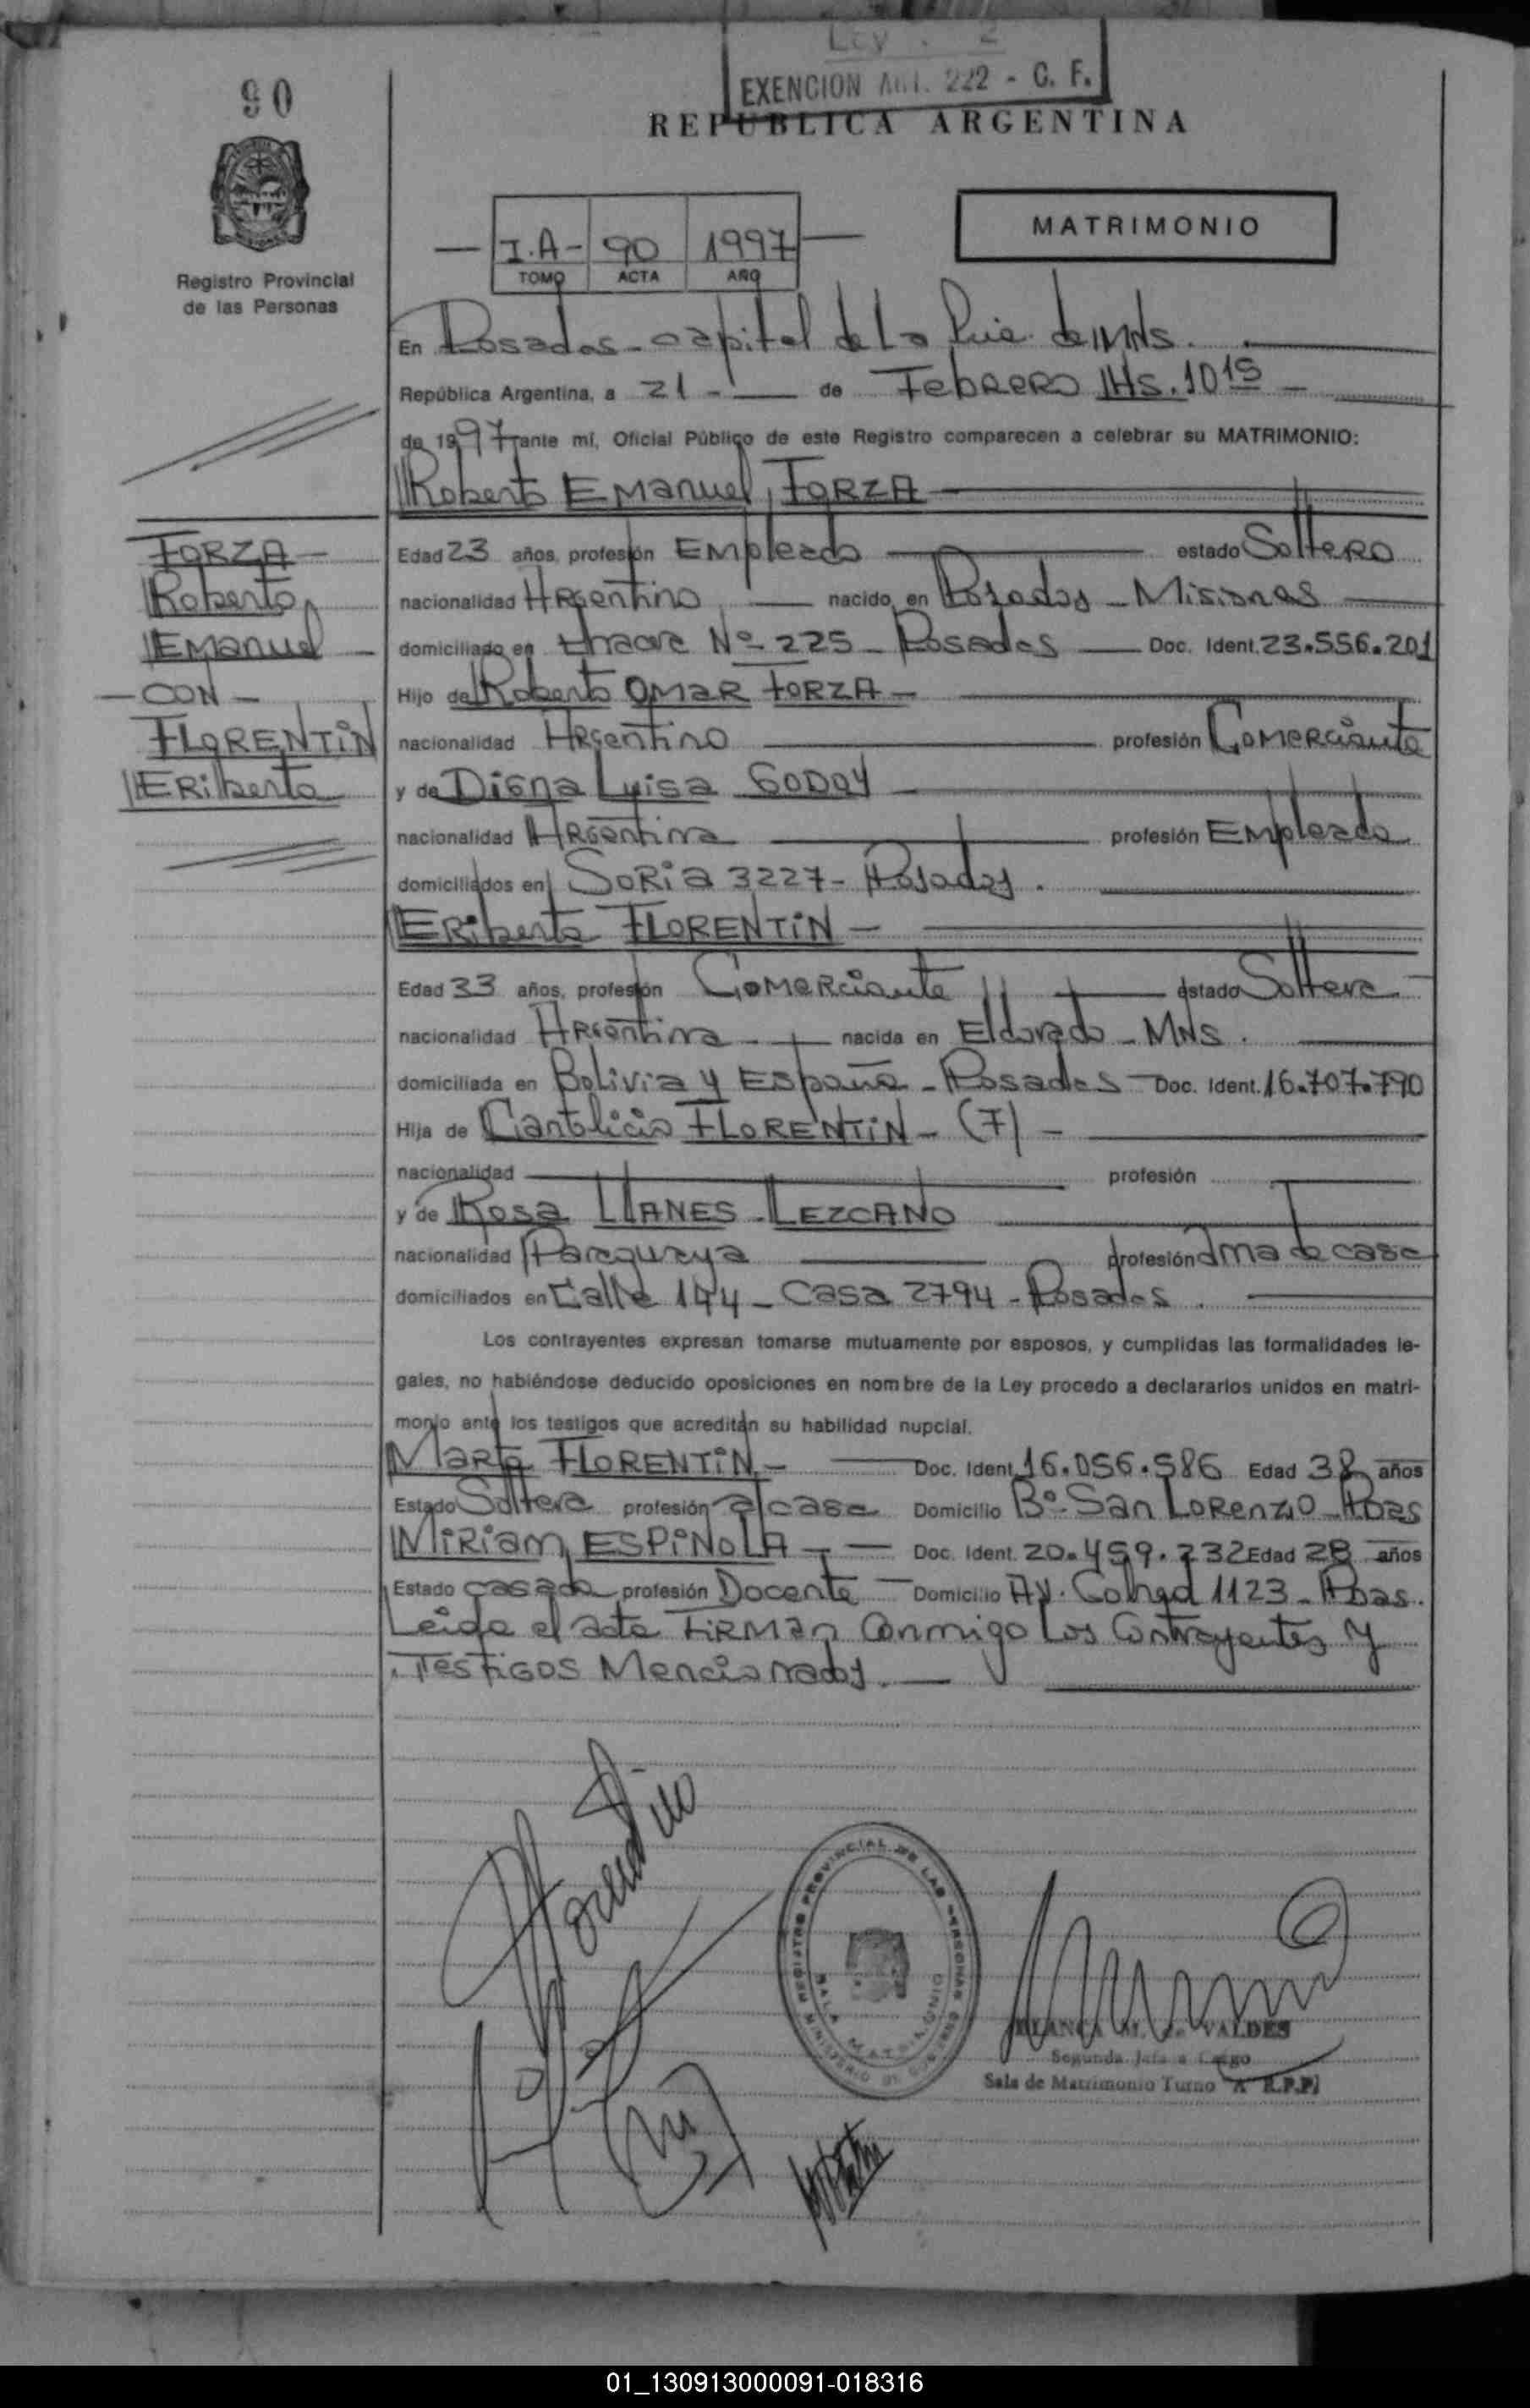 90
EXENCION Art. 222 - C. F.
REPUBLICA ARGENTINA
I.A- 90 1997
TOMO ACTA AÑO
MATRIMONIO
Registro Provincial
de las Personas
En Posadas - capital de la Pcia. de MNs.
República Argentina, a 21 - de Febrero Hs. 10 15
de 1997 ante mí, Oficial Público de este Registro comparecen a celebrar su MATRIMONIO:
Roberto Emanuel FORZA
FORZA
Roberto
Emanuel
- CON -
FLORENTIN
Eriberta
Edad 23 años, profesión Empleado estado Soltero
nacionalidad Argentino nacido en Posadas - Misiones
domiciliado en Nº 225 - Posadas Doc. Ident. 23.556.201
Hijo de Roberto Omar FORZA -
nacionalidad Argentino profesión Comerciante
y de Digna Luisa GODOY
nacionalidad Argentina profesión Empleada
domiciliados en Soria 3227 - Posadas.
Eriberta FLORENTIN -
Edad 33 años, profesión Comerciante estado Soltera
nacionalidad Argentina nacida en Eldorado - MNS.
domiciliada en Bolivia y España - Posadas Doc. Ident. 16.707.790
Hija de FLORENTIN - (F) -
nacionalidad profesión
y de Rosa LLANES - LEZCANO
nacionalidad Paraguaya profesión Ama de casa
domiciliados en Calle 144 - Casa 2794 - Posadas.
Los contrayentes expresan tomarse mutuamente por esposos, y cumplidas las formalidades le-
gales, no habiéndose deducido oposiciones en nombre de la Ley procedo a declararlos unidos en matri-
monio ante los testigos que acreditan su habilidad nupcial.
Marta FLORENTIN - Doc. Ident. 16.056.586 Edad 38 años
Estado Soltera profesión a/casa Domicilio Bº San Lorenzo - Pdas
Miriam ESPINOLA - Doc. Ident. 20.459.232 Edad 28 años
Estado casada profesión Docente Domicilio Av. 1123 - Pdas.
Leida el acta Firman conmigo los Contrayentes y
Testigos Mencionados.
REGISTRO PROVINCIAL DE LAS PERSONAS
SALA MATRIMONIO
MINISTERIO DE GOBIERNO
BLANCA M. de VALDES
Segunda Jefa a Cargo
Sala de Matrimonio Turno "A" R.P.P.
01_130913000091-018316